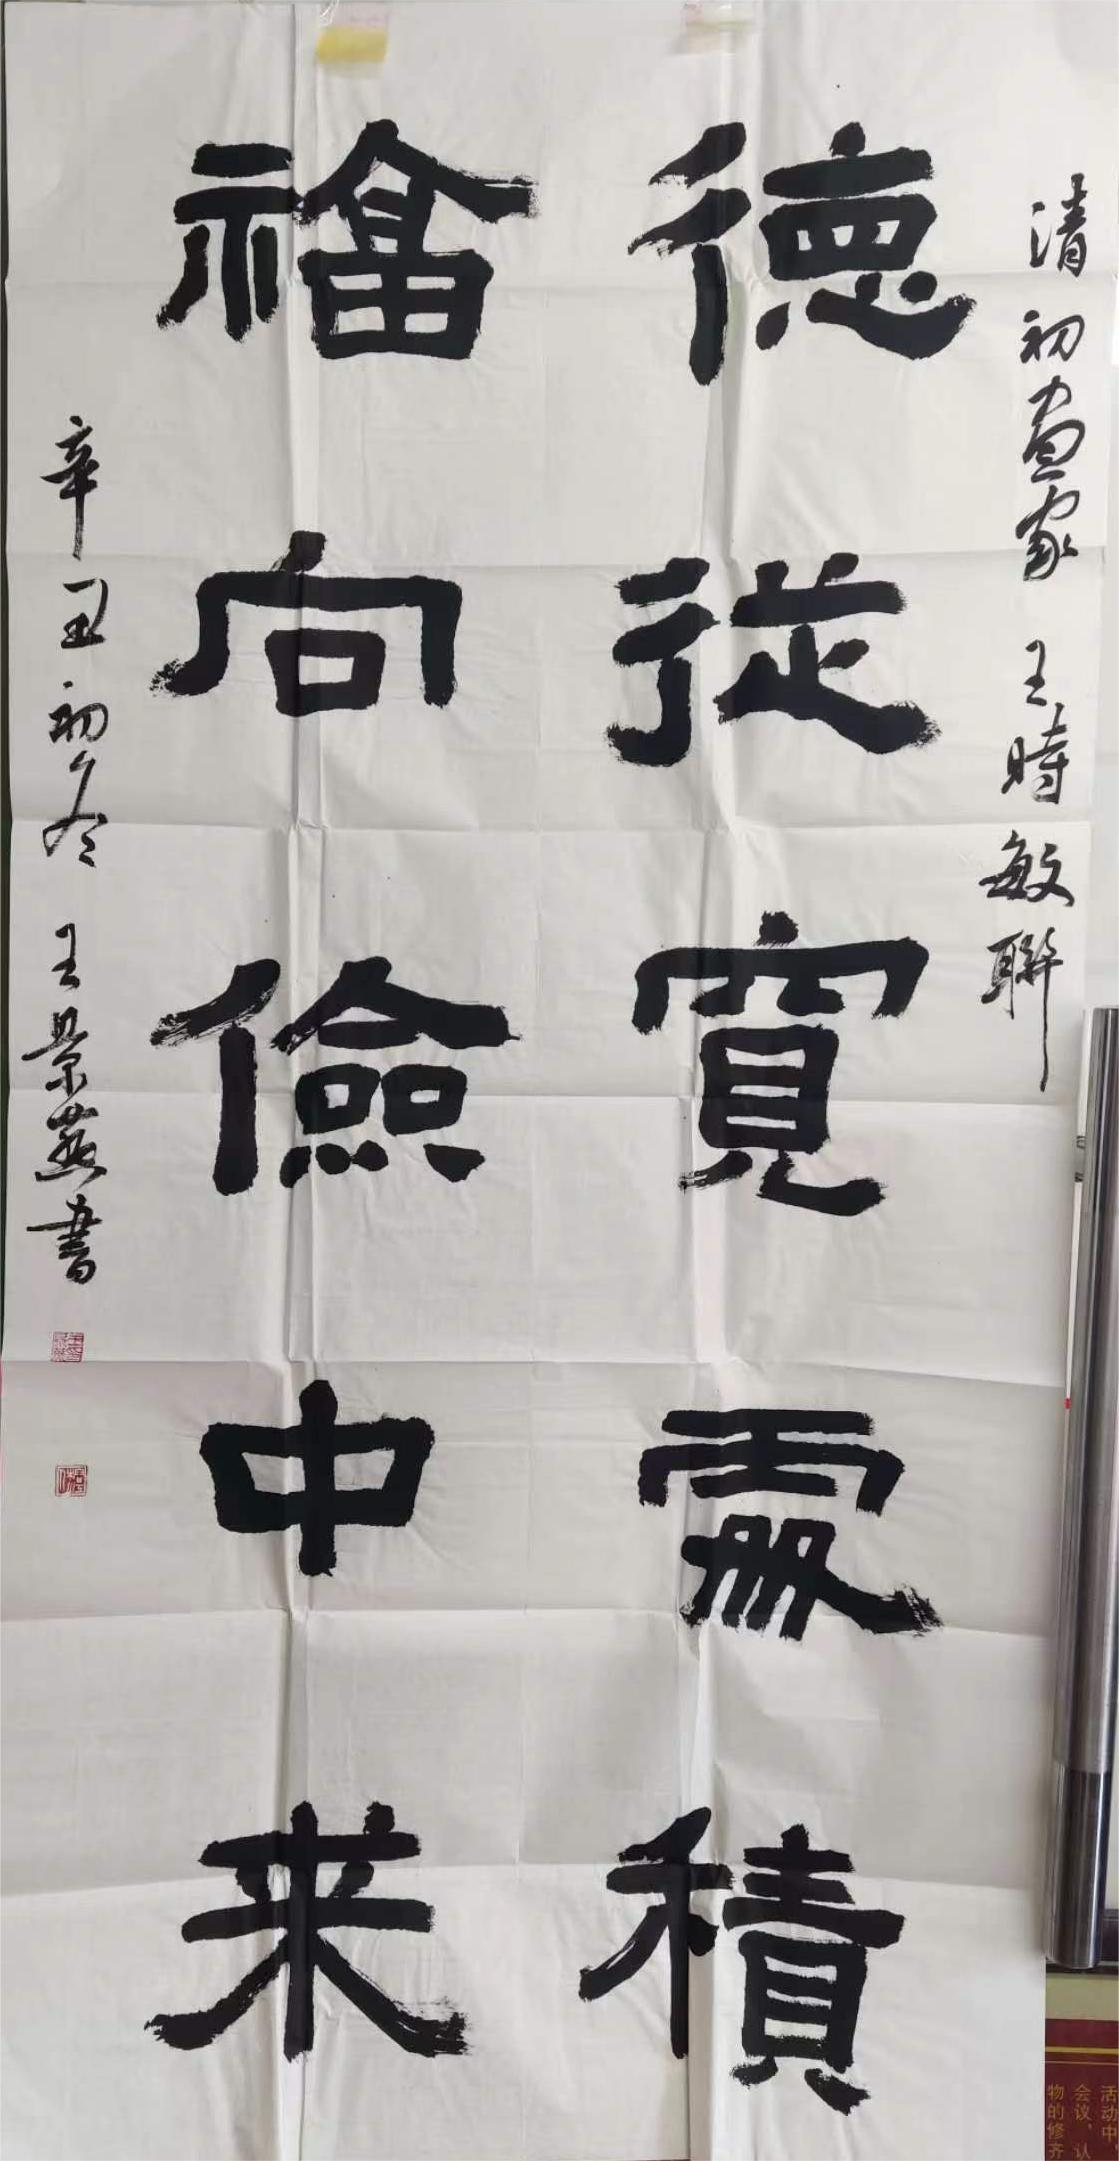 清初画家王時敏聯
德從寬處積
福向儉中来
辛丑初冬王景燕書
活动中
会议，认
物的修齐